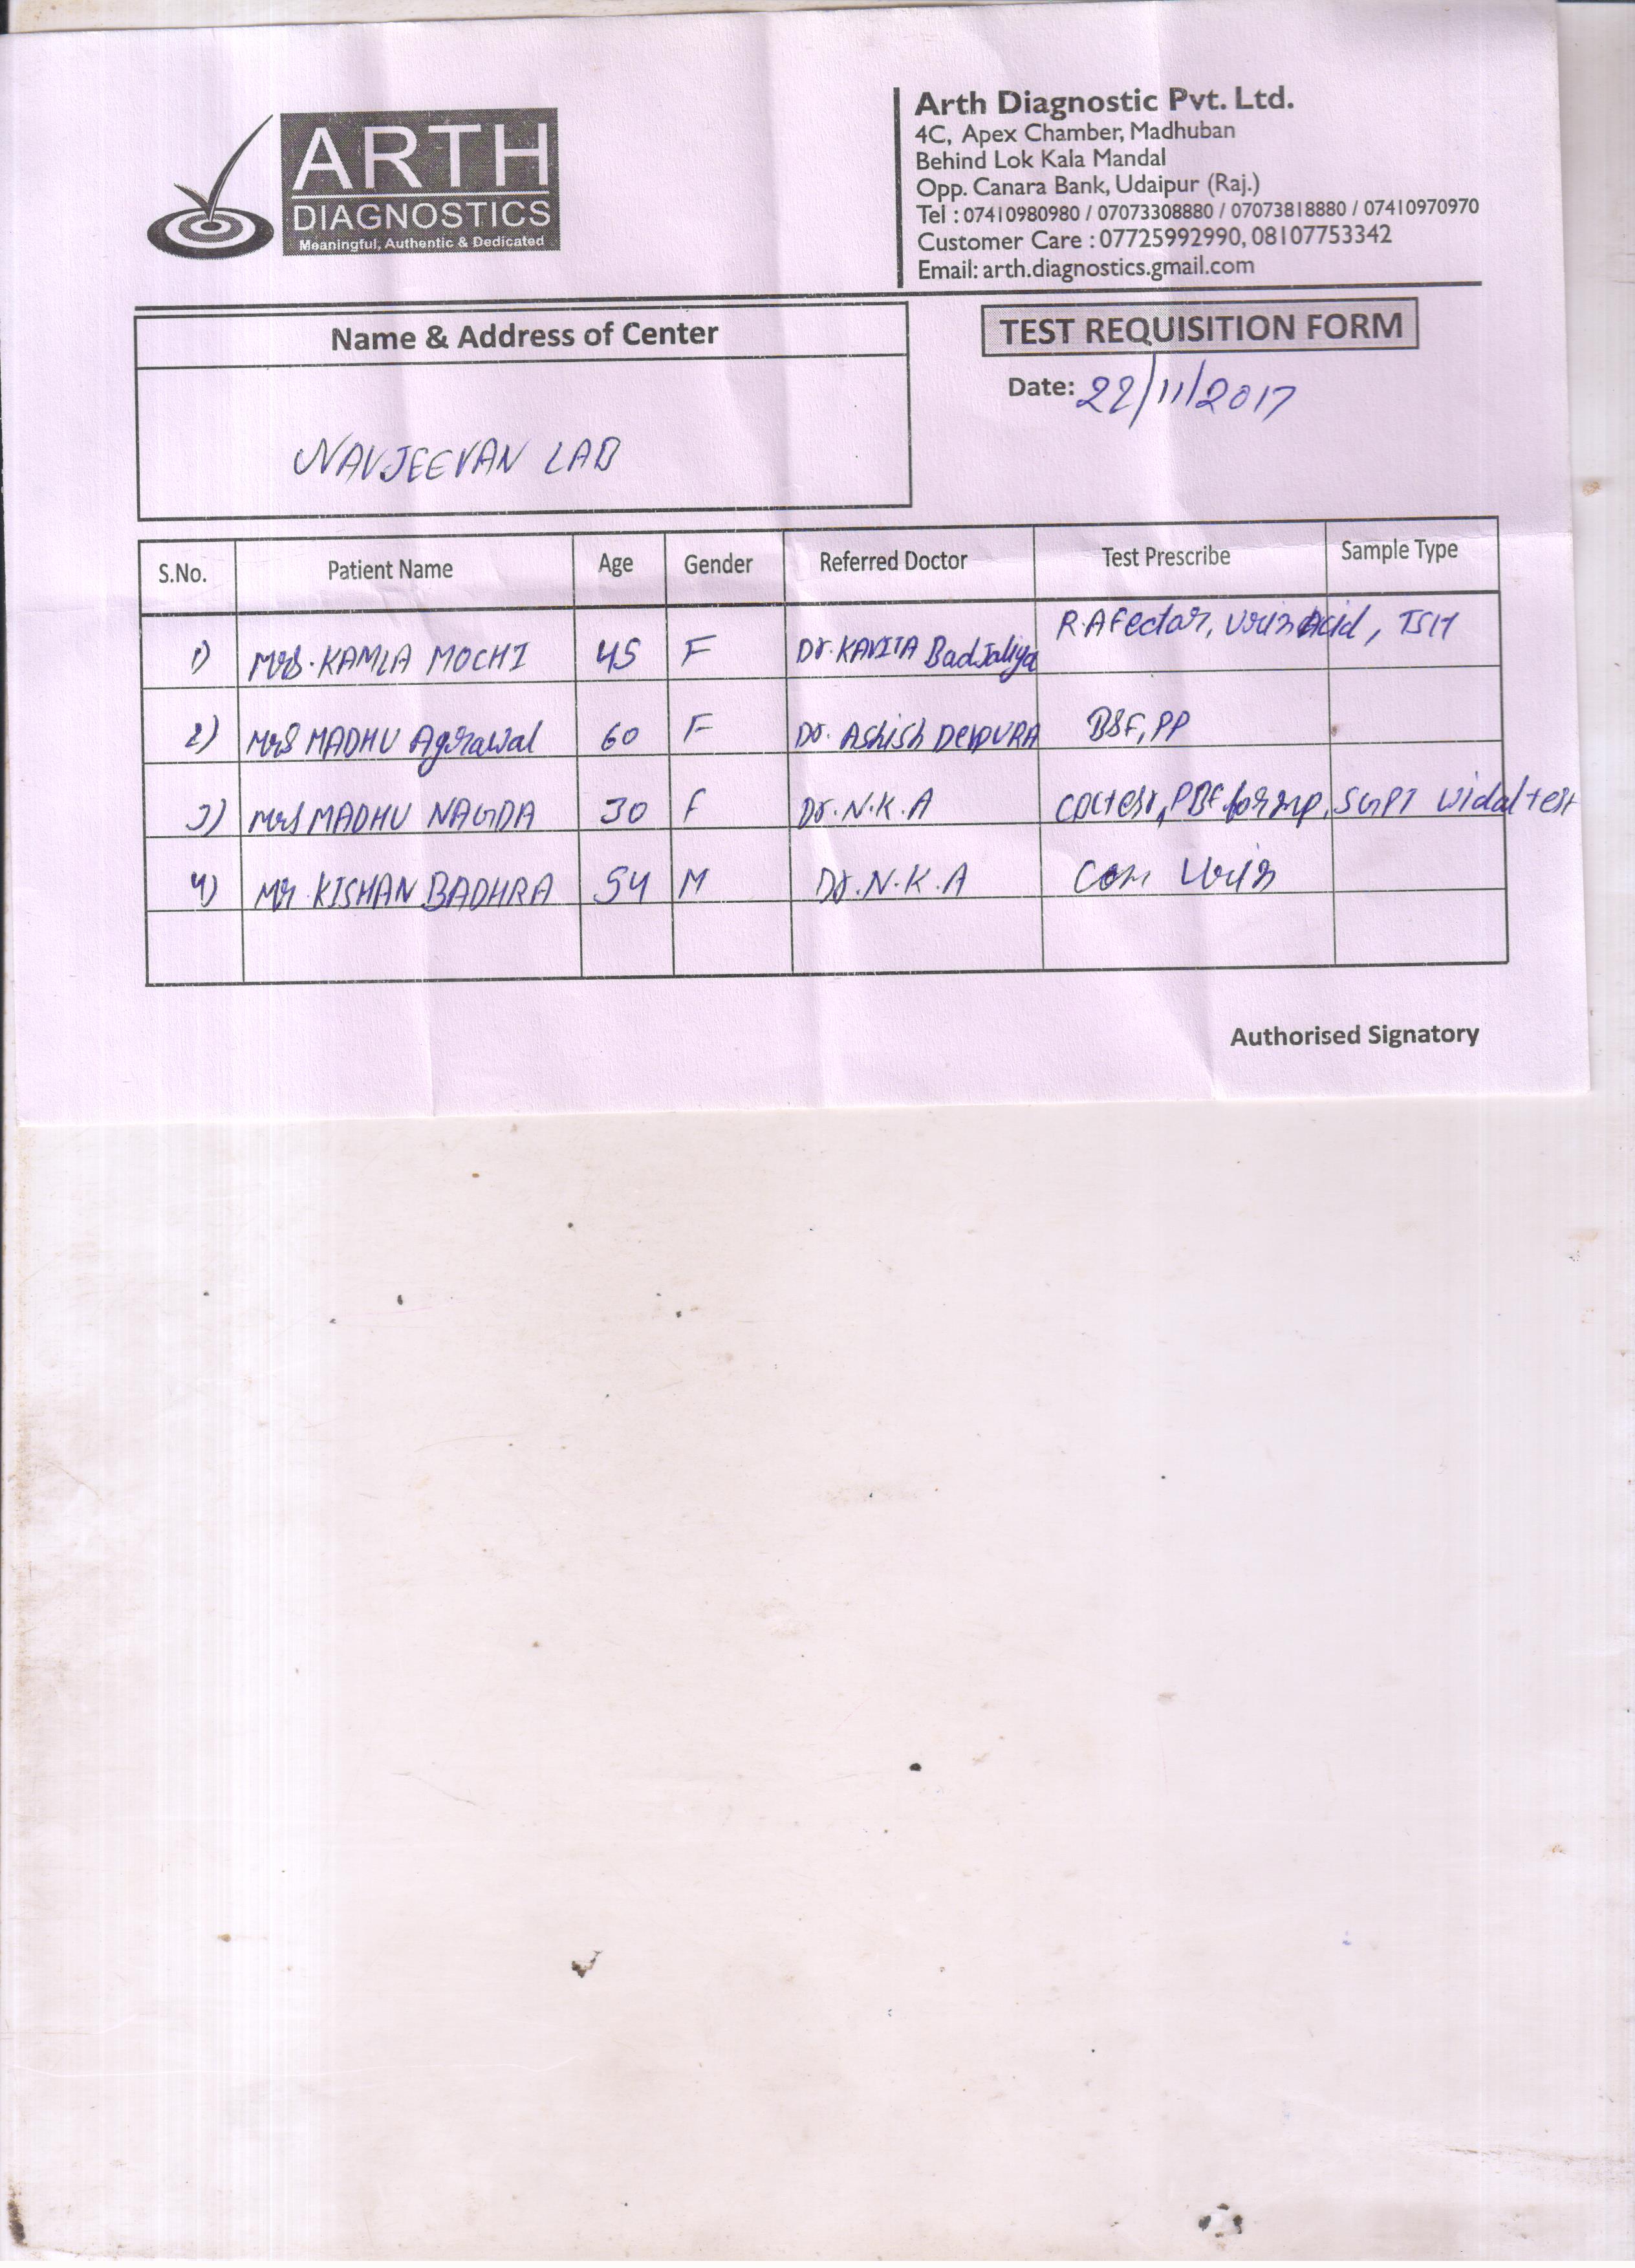 ARTH
DIAGNOSTICS
Meaningful, Authentic & Dedicated
Arth Diagnostic Pvt. Ltd.
4C, Apex Chamber, Madhuban
Behind Lok Kala Mandal
Opp. Canara Bank, Udaipur (Raj.)
Tel : 07410980980 / 07073308880 / 07073818880 / 07410970970
Customer Care : 07725992990, 08107753342
Email: arth.diagnostics.gmail.com
Name & Address of Center
NAVJEEVAN LAB
TEST REQUISITION FORM
Date: 22/11/2017
S.No. Patient Name Age Gender Referred Doctor Test Prescribe Sample Type
1) Mrs. KAMLA MOCHI 45 F Dr. KAVITA BadJaliya R.A Fector, Uric Acid, TSH
2) Mrs MADHU Agrawal 60 F Dr. Ashish DEVPURA BSF, PP
3) Mrs MADHU NAGDA 30 F Dr. N.K.A PBF for mp, SGPT widal test
4) Mr. KISHAN BADHRA 54 M Dr. N.K.A Com Urin
Authorised Signatory